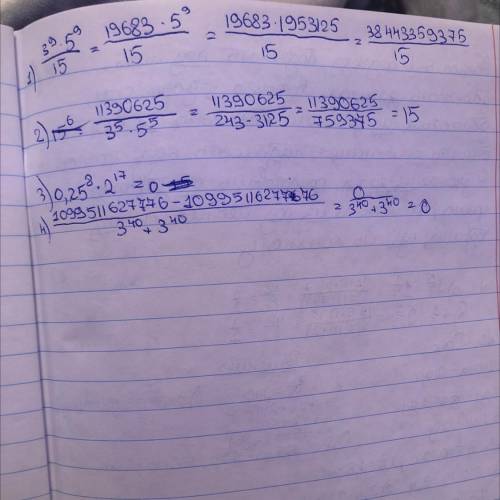 1) 3⁹·5⁹/15 = 19683·5⁹/15 = 19683·1953125/15 = 38443359375/15
2) 11390625/3⁵·5⁵ = 11390625/243·3125 = 11390625/759375 = 15
3) 0,25⁸·2¹⁷ = 0
4) 1099511627776-1099511627776/3⁴⁰+3⁴⁰ = 0/3⁴⁰+3⁴⁰ = 0